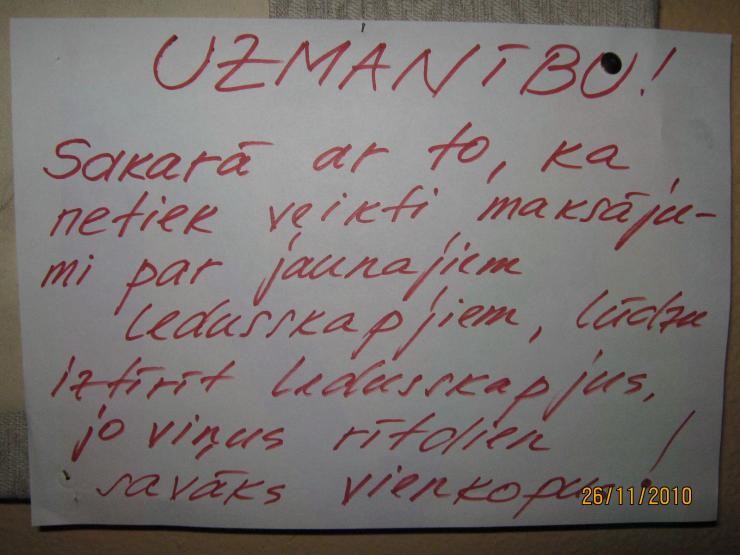 UZMANĪBU!
Sakarā ar to, ka
netiek veikti maksāju-
mi par jaunajiem
ledusskapjiem, lūdzu
iztīrīt ledusskapjus,
jo viņus rītdien
savāks vienkopus!
26/11/2010